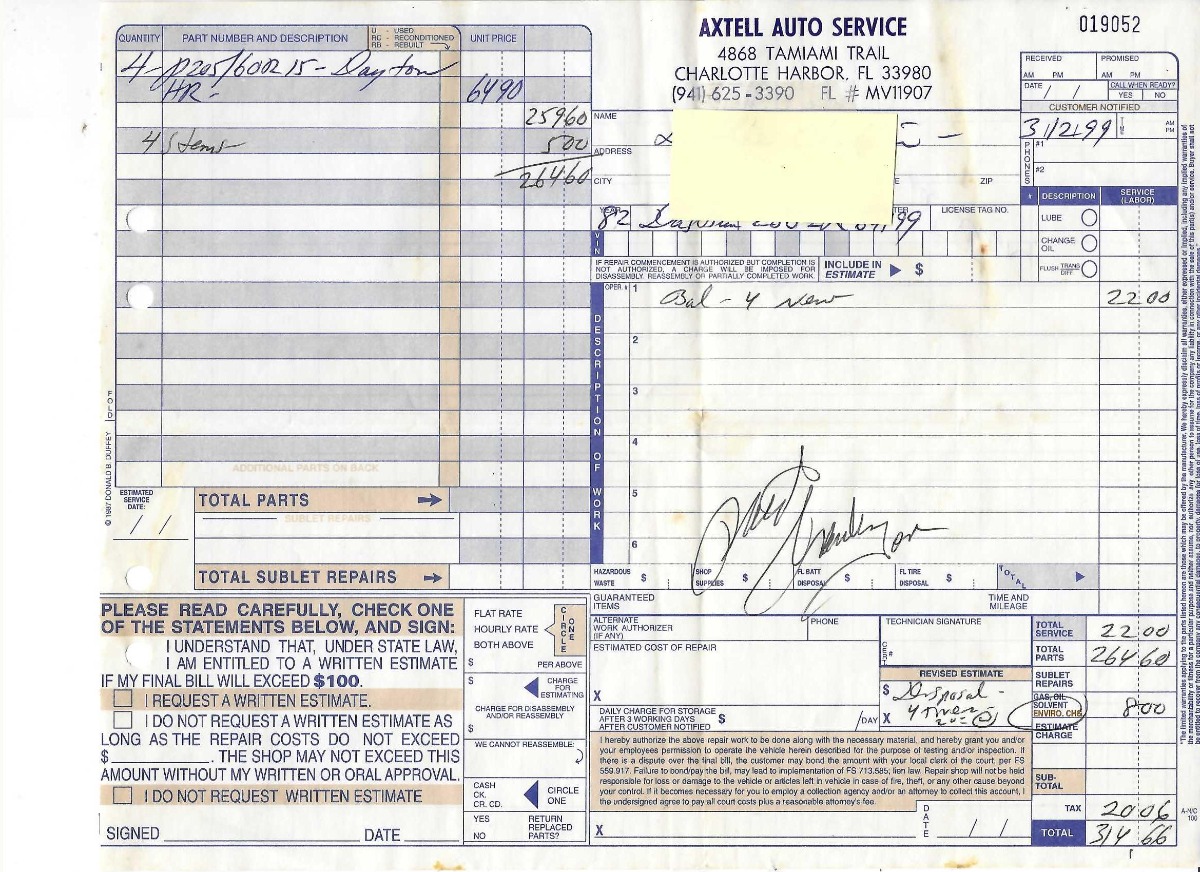 AXTELL AUTO SERVICE
4868 TAMIAMI TRAIL
CHARLOTTE HARBOR, FL 33980
(941) 625-3390 FL # MV11907
019052
QUANTITY PART NUMBER AND DESCRIPTION U - USED RC - RECONDITIONED RB - REBUILT UNIT PRICE
4- P205/60R 15 - Dayton
HR - 64 90
259 60
4 Stems 5 00
264 60
ADDITIONAL PARTS ON BACK
ESTIMATED SERVICE DATE: / /
TOTAL PARTS
SUBLET REPAIRS
TOTAL SUBLET REPAIRS
© 1987 DONALD B. DUFFEY
FOLD
RECEIVED AM PM
PROMISED AM PM
DATE / /
CALL WHEN READY? YES NO
CUSTOMER NOTIFIED
3/12/99 TIME AM PM
PHONES #1
#2
NAME
ADDRESS
CITY ZIP
YEAR LICENSE TAG NO.
82 99
VIN
IF REPAIR COMMENCEMENT IS AUTHORIZED BUT COMPLETION IS NOT AUTHORIZED, A CHARGE WILL BE IMPOSED FOR DISASSEMBLY, REASSEMBLY OR PARTIALLY COMPLETED WORK
INCLUDE IN ESTIMATE $
# DESCRIPTION SERVICE (LABOR)
LUBE
CHANGE OIL
FLUSH TRANS DIFF
OPER. #
DESCRIPTION OF WORK
1 Bal - 4 new 22 00
2
3
4
5
6
HAZARDOUS WASTE $ SHOP SUPPLIES $ FL BATT DISPOSAL $ FL TIRE DISPOSAL $ TOTAL
GUARANTEED ITEMS TIME AND MILEAGE
ALTERNATE WORK AUTHORIZER (IF ANY) PHONE
ESTIMATED COST OF REPAIR
X
TECHNICIAN SIGNATURE
CERT #
REVISED ESTIMATE
$ Disposal -
X 4 tires
2 00
DAILY CHARGE FOR STORAGE AFTER 3 WORKING DAYS AFTER CUSTOMER NOTIFIED $ /DAY
I hereby authorize the above repair work to be done along with the necessary material, and hereby grant you and/or
your employees permission to operate the vehicle herein described for the purpose of testing and/or inspection. If
there is a dispute over the final bill, the customer may bond the amount with your local clerk of the court, per FS
559.917. Failure to bond/pay the bill, may lead to implementation of FS 713.585; lien law. Repair shop will not be held
responsible for loss or damage to the vehicle or articles left in vehicle in case of fire, theft, or any other cause beyond
your control. If it becomes necessary for you to employ a collection agency and/or an attorney to collect this account, I
the undersigned agree to pay all court costs plus a reasonable attorney's fee.
X DATE / /
TOTAL SERVICE 22 00
TOTAL PARTS 264 60
SUBLET REPAIRS
GAS, OIL SOLVENT ENVIRO. CHG 8 00
ESTIMATE CHARGE
SUB-TOTAL
TAX 20 06
TOTAL 314 66
A-N/C 100
PLEASE READ CAREFULLY, CHECK ONE
OF THE STATEMENTS BELOW, AND SIGN:
I UNDERSTAND THAT, UNDER STATE LAW,
I AM ENTITLED TO A WRITTEN ESTIMATE
IF MY FINAL BILL WILL EXCEED $100.
I REQUEST A WRITTEN ESTIMATE.
I DO NOT REQUEST A WRITTEN ESTIMATE AS
LONG AS THE REPAIR COSTS DO NOT EXCEED
$________. THE SHOP MAY NOT EXCEED THIS
AMOUNT WITHOUT MY WRITTEN OR ORAL APPROVAL.
I DO NOT REQUEST WRITTEN ESTIMATE
SIGNED DATE
FLAT RATE
HOURLY RATE
BOTH ABOVE
CIRCLE ONE
$ PER ABOVE
$ CHARGE FOR ESTIMATING
CHARGE FOR DISASSEMBLY AND/OR REASSEMBLY
$
WE CANNOT REASSEMBLE:
CASH
CK.
CR. CD.
CIRCLE ONE
YES
NO
RETURN REPLACED PARTS?